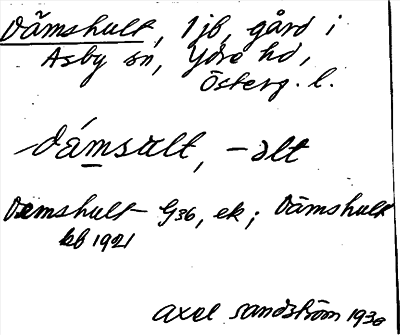 Dämshult, 1 jb, gård i
Asby sn, Ydre hd,
Österg. l.
dámsult, -ɘlt
Demshult G36, ek; Dämshult
kb 1921
Axel Sandström 1930